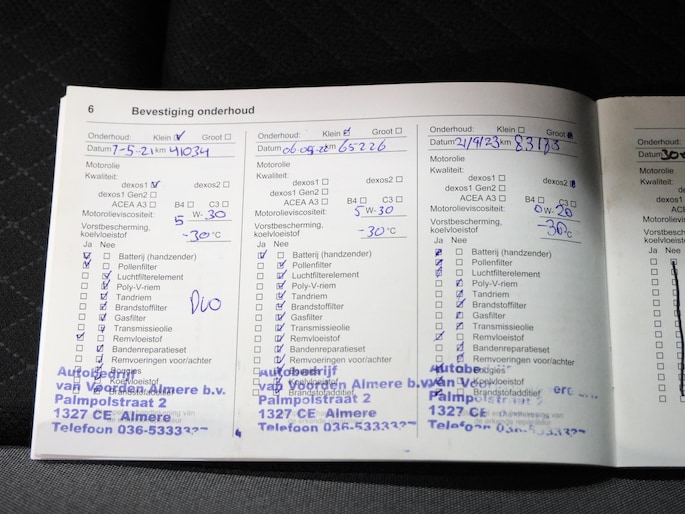 6 Bevestiging onderhoud
Onderhoud: Klein Groot
Datum 7-5-21 km 41034
Motorolie
Kwaliteit:
dexos1 dexos2
dexos1 Gen2
ACEA A3 B4 C3
Motorolieviscositeit: 5 W-30
Vorstbescherming,
koelvloeistof -30 °C
Ja Nee
Batterij (handzender)
Pollenfilter
Luchtfilterelement
Poly-V-riem
Tandriem
Brandstoffilter
Gasfilter
Transmissieolie
Remvloeistof
Bandenreparatieset
Remvoeringen voor/achter
Bougies
Koelvloeistof
Brandstofadditief
Autobedrijf
van Voorden Almere b.v.
Palmpolstraat 2
1327 CE Almere
Telefoon 036-5333327
Onderhoud: Klein Groot
Datum km 65226
Motorolie
Kwaliteit:
dexos1 dexos2
dexos1 Gen2
ACEA A3 B4 C3
Motorolieviscositeit: 5 W-30
Vorstbescherming,
koelvloeistof -30 °C
Ja Nee
Batterij (handzender)
Pollenfilter
Luchtfilterelement
Poly-V-riem
Tandriem
Brandstoffilter
Gasfilter
Transmissieolie
Remvloeistof
Bandenreparatieset
Remvoeringen voor/achter
Bougies
Koelvloeistof
Brandstofadditief
Autobedrijf
van Voorden Almere b.v.
Palmpolstraat 2
1327 CE Almere
Telefoon 036-5333327
Onderhoud: Klein Groot
Datum 21/9/23 km
Motorolie
Kwaliteit:
dexos1 dexos2
dexos1 Gen2
ACEA A3 B4 C3
Motorolieviscositeit: 0 W-20
Vorstbescherming,
koelvloeistof -30 °C
Ja Nee
Batterij (handzender)
Pollenfilter
Luchtfilterelement
Poly-V-riem
Tandriem
Brandstoffilter
Gasfilter
Transmissieolie
Remvloeistof
Bandenreparatieset
Remvoeringen voor/achter
Bougies
Koelvloeistof
Brandstofadditief
1327 CE
Onderhoud:
Datum 30
Motorolie
Kwaliteit:
Motorolie
Vorstbesc
koelvloei
Ja Nee